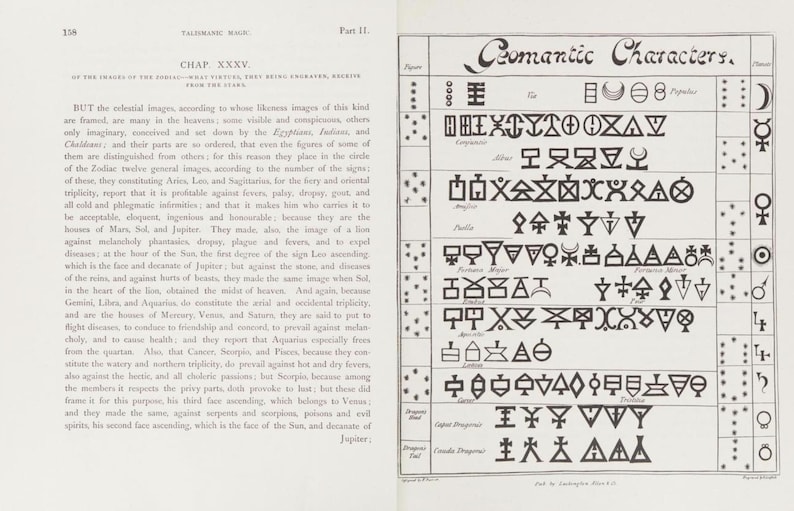 158
TALISMANIC MAGIC.
Part II.
CHAP. XXXV.
OF THE IMAGES OF THE ZODIAC—WHAT VIRTUES, THEY BEING ENGRAVEN, RECEIVE
FROM THE STARS.
BUT the celestial images, according to whose likeness images of this kind
are framed, are many in the heavens; some visible and conspicuous, others
only imaginary, conceived and set down by the Egyptians, Indians, and
Chaldeans; and their parts are so ordered, that even the figures of some of
them are distinguished from others; for this reason they place in the circle
of the Zodiac twelve general images, according to the number of the signs;
of these, they constituting Aries, Leo, and Sagittarius, for the fiery and oriental
triplicity, report that it is profitable against fevers, palsy, dropsy, gout, and
all cold and phlegmatic infirmities; and that it makes him who carries it to
be acceptable, eloquent, ingenious and honourable; because they are the
houses of Mars, Sol, and Jupiter. They made, also, the image of a lion
against melancholy phantasies, dropsy, plague and fevers, and to expel
diseases; at the hour of the Sun, the first degree of the sign Leo ascending,
which is the face and decanate of Jupiter; but against the stone, and diseases
of the reins, and against hurts of beasts, they made the same image when Sol,
in the heart of the lion, obtained the midst of heaven. And again, because
Gemini, Libra, and Aquarius, do constitute the ærial and occidental triplicity,
and are the houses of Mercury, Venus, and Saturn, they are said to put to
flight diseases, to conduce to friendship and concord, to prevail against melan-
choly, and to cause health; and they report that Aquarius especially frees
from the quartan. Also, that Cancer, Scorpio, and Pisces, because they con-
stitute the watery and northern triplicity, do prevail against hot and dry fevers,
also against the hectic, and all choleric passions; but Scorpio, because among
the members it respects the privy parts, doth provoke to lust; but these did
frame it for this purpose, his third face ascending, which belongs to Venus;
and they made the same, against serpents and scorpions, poisons and evil
spirits, his second face ascending, which is the face of the Sun, and decanate of
Jupiter;
Geomantic Characters.
Figure
Planets
Via
Populus
Conjunctio
Albus
Amissio
Puella
Fortuna Major
Fortuna Minor
Rubeus
Puer
Aquisitio
Laetitia
Carcer
Tristitia
Dragons
Head
Caput Draconis
Dragons
Tail
Cauda Draconis
Pub. by Lackington Allen & Co.